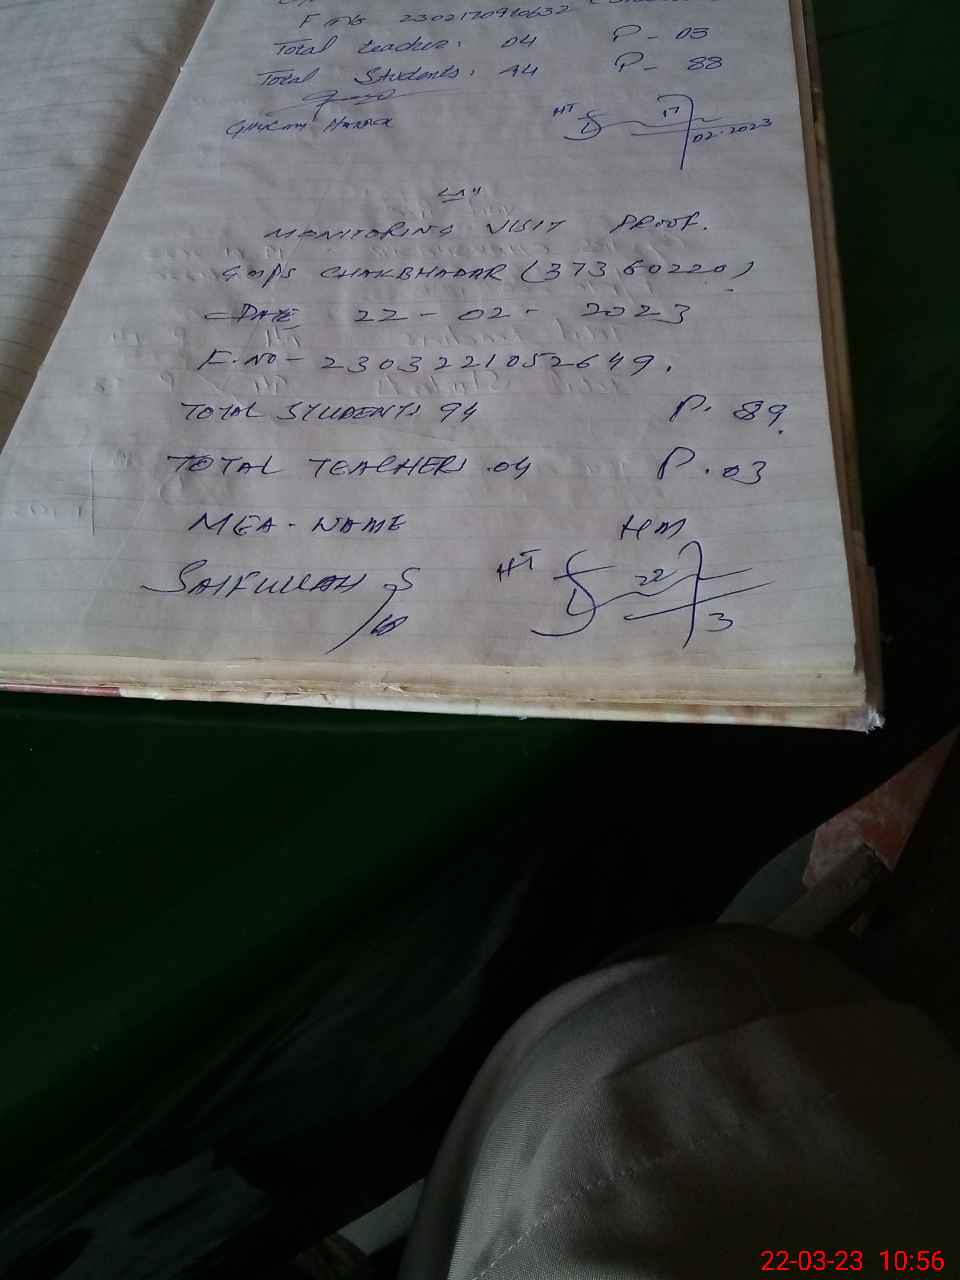 F. No 2302170910632
Total teacher: 04 P- 03
Total Students: 94 P- 88
HT 17
02.2023
"A"
MONITORING VISIT PROOF.
GMPS CHAKBHADAR (37360220)
DATE 22-02-2023
F.NO - 2303221052649.
TOTAL STUDENTS 94 P. 89.
TOTAL TEACHERS .04 P. 03
MEA-NAME HM
SAIFULLAH HT 22
3
22-03-23 10:56